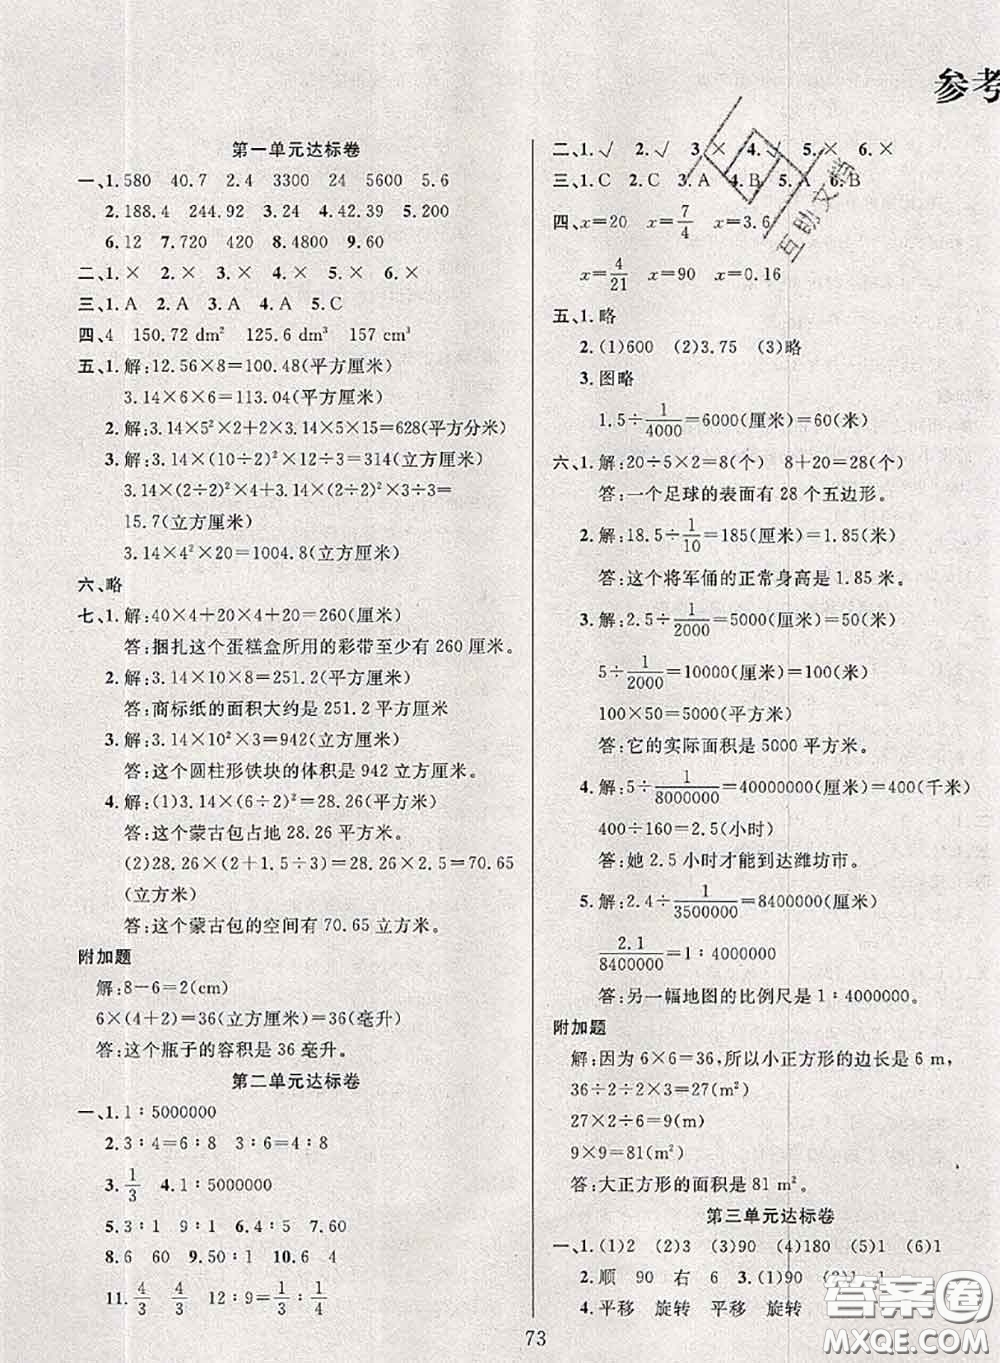 参考
第一单元达标卷
一、1.580 40.7 2.4 3300 24 5600 5.6
2.188.4 244.92 3.24 4.125.6 39.5 5.200
6.12 7.720 420 8.4800 9.60
二、1.× 2.× 3.× 4.× 5.× 6.×
三、1.A 2.A 3.A 4.A 5.C
四、4 150.72 dm² 125.6 dm³ 157 cm³
五、1.解:12.56×8=100.48(平方厘米)
3.14×6×6=113.04(平方厘米)
2.解:3.14×5²×2+2×3.14×5×15=628(平方分米)
3.解:3.14×(10÷2)²×12÷3=314(立方厘米)
3.14×(2÷2)²×4+3.14×(2÷2)²×3÷3=
15.7(立方厘米)
3.14×4²×20=1004.8(立方厘米)
六、略
七、1.解:40×4+20×4+20=260(厘米)
答:捆扎这个蛋糕盒所用的彩带至少有 260 厘米。
2.解:3.14×10×8=251.2(平方厘米)
答:商标纸的面积大约是 251.2 平方厘米
3.解:3.14×10²×3=942(立方厘米)
答:这个圆柱形铁块的体积是 942 立方厘米。
4.解:(1)3.14×(6÷2)²=28.26(平方米)
答:这个蒙古包占地 28.26 平方米。
(2)28.26×(2+1.5÷3)=28.26×2.5=70.65
(立方米)
答:这个蒙古包的空间有 70.65 立方米。
附加题
解:8-6=2(cm)
6×(4+2)=36(立方厘米)=36(毫升)
答:这个瓶子的容积是 36 毫升。
第二单元达标卷
一、1.1∶5000000
2.3∶4=6∶8 3∶6=4∶8
3.1/3 4.1∶5000000
5.3∶1 9∶1 6.24∶1 7.60
8.6 60 9.50∶1 10.6 4
11.4/3 4/3 12∶9=1/3∶1/4
二、1.√ 2.√ 3.× 4.√ 5.× 6.×
三、1.C 2.C 3.A 4.B 5.A 6.B
四、x=20 x=7/4 x=3.6
x=4/21 x=90 x=0.16
五、1.略
2.(1)600 (2)3.75 (3)略
3.图略
1.5÷1/4000=6000(厘米)=60(米)
六、1.解:20÷5×2=8(个) 8+20=28(个)
答:一个足球的表面有 28 个五边形。
2.解:18.5÷1/10=185(厘米)=1.85(米)
答:这个将军俑的正常身高是 1.85 米。
3.解:2.5÷1/2000=5000(厘米)=50(米)
5÷1/2000=10000(厘米)=100(米)
100×50=5000(平方米)
答:它的实际面积是 5000 平方米。
4.解:5÷1/8000000=40000000(厘米)=400(千米)
400÷160=2.5(小时)
答:她 2.5 小时才能到达潍坊市。
5.解:2.4÷1/3500000=8400000(厘米)
2.1/8400000=1∶4000000
答:另一幅地图的比例尺是 1∶4000000。
附加题
解:因为 6×6=36,所以小正方形的边长是 6 m,
36÷2÷2×3=27(m²)
27×2÷6=9(m)
9×9=81(m²)
答:大正方形的面积是 81 m²。
第三单元达标卷
一、1.(1)2 (2)3 (3)90 (4)180 (5)1 (6)1
2.顺 90 右 6 3.(1)90 (2)1 1
4.平移 旋转 平移 旋转
73
互助文档
答案圈
MXQE.COM